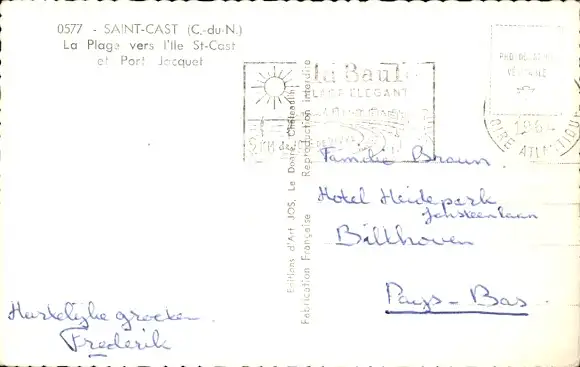 0577 - SAINT-CAST (C.-du-N.)
La Plage vers l'Ile St-Cast
et Port Jacquet
la Baule
PLAGE ÉLÉGANTE
PHOTOGRAPHIE
VÉRITABLE
1964
LOIRE ATLANTIQUE
Editions d'Art JOS, Le Doaré, Châteaulin
Reproduction interdite
Fabrication Française
Familie Braun
Hotel Heidepark
Jan Steenlaan
Bilthoven
Pays-Bas
Hartelijke groeten
Frederik